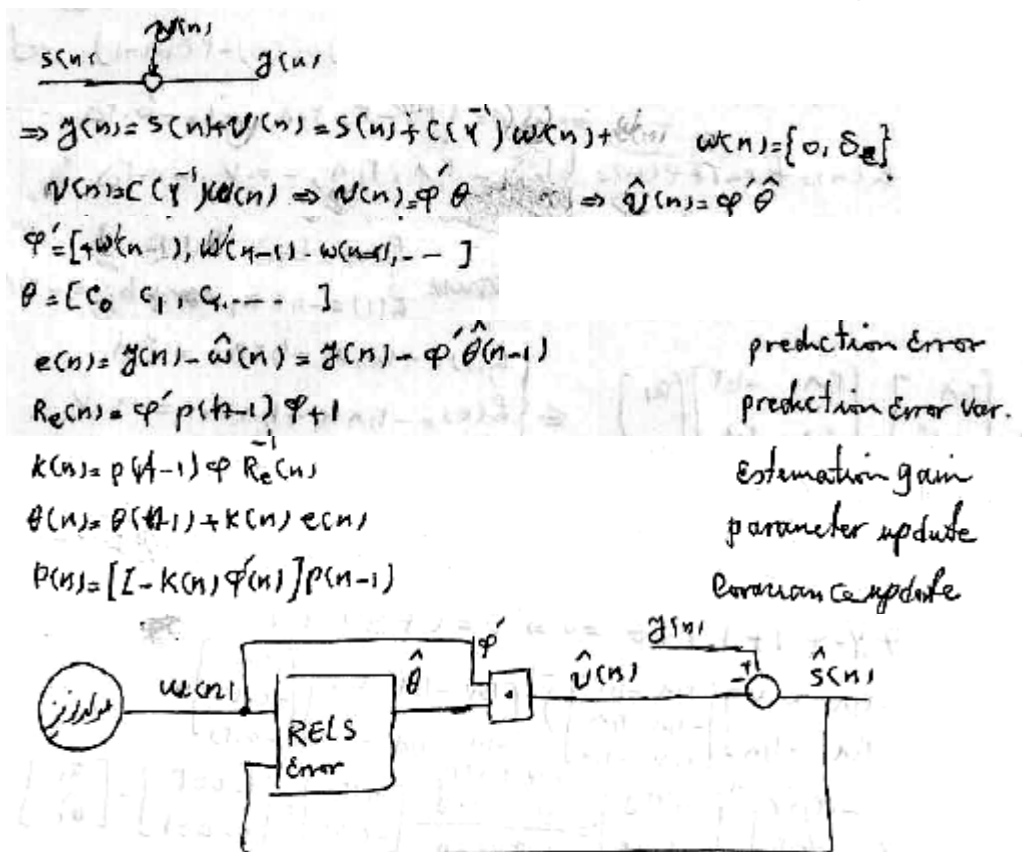 v(n)
s(n) y(n)
⇒ y(n) = s(n) + v(n) = s(n) + C(q⁻¹) w(n) + w(n) = {0, δe}
v(n) = C(q⁻¹) w(n) ⇒ v(n) = φ'θ ⇒ v̂(n) = φ'θ̂
φ' = [+w(n-1), w(n-1) - w(n-1), - - ]
θ = [c₀ c₁, c₁, ... ]
e(n) = y(n) - ŵ(n) = y(n) - φ'θ̂(n-1) prediction error
Re(n) = φ' p(n-1) φ + 1 prediction error var.
k(n) = p(n-1) φ Re⁻¹(n) Estemation gain
θ(n) = θ(n-1) + k(n) e(n) parameter update
P(n) = [I - k(n) φ'(n)] p(n-1) Covariance update
φ' y(n)
w(n) θ̂ · v̂(n) - + ŝ(n)
مولد نویز
RELS
Error